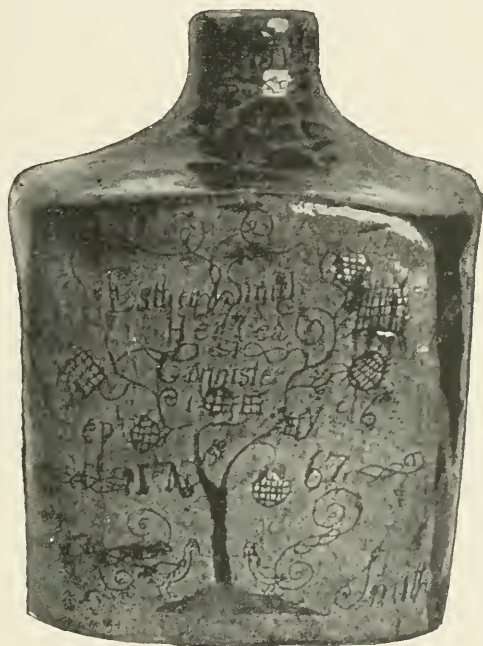 Esther Smith
Her Tea
Cannister
Sep
17 67
Smith